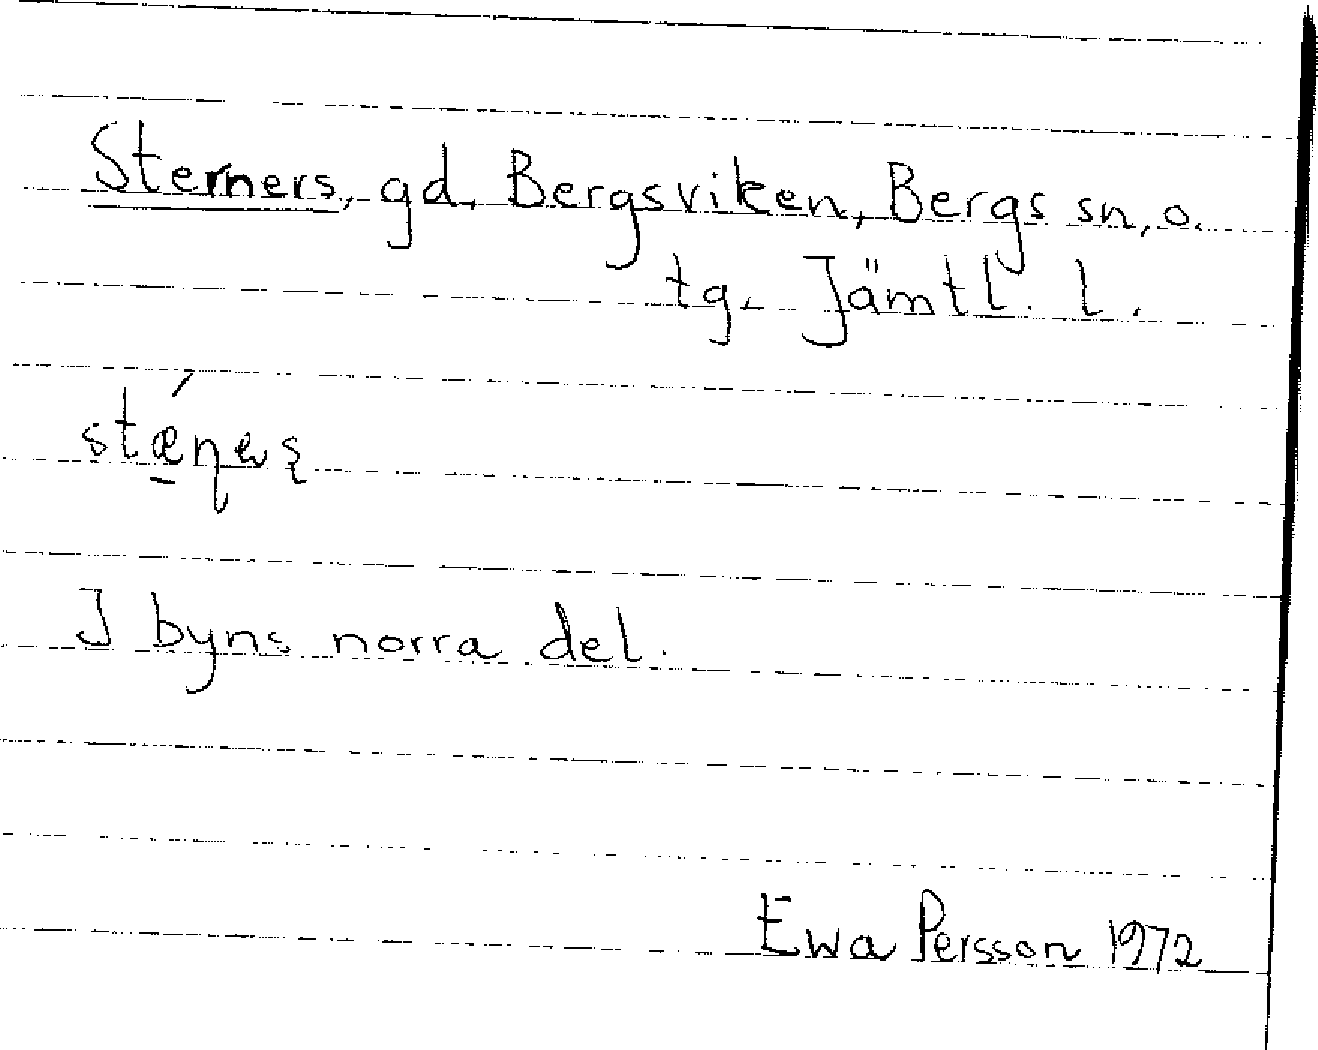 Sterners, gd, Bergsviken, Bergs sn, o.
tg. Jämtl. l.
I byns norra del.
Ewa Persson 1972